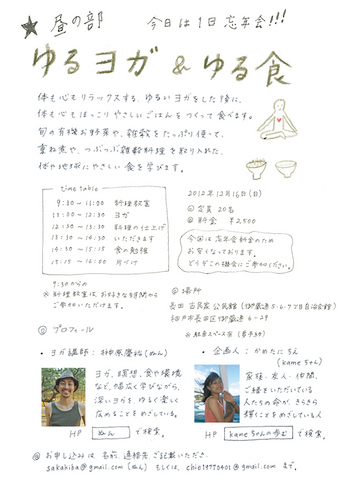 ★昼の部 今日は1日忘年会!!!
ゆるヨガ & ゆる食
体も心もリラックスする、ゆるいヨガをした後に、
体も心もほっこりやさしいごはんをつくって食べます。
旬の有機お野菜や、雑穀をたっぷり使って、
重ね煮や、つぶつぶ雑穀料理を取り入れた、
体や地球にやさしい食を学びます。
time table
9:30 ~ 11:00 料理教室
11:00 ~ 12:30 ヨガ
12:30 ~ 13:30 料理の仕上げ
13:30 ~ 14:30 いただきます
14:30 ~ 15:15 食の勉強
15:15 ~ 16:00 片づけ
9:30からの
※料理教室は、お好きな時間から
ご参加いただけます。
2012年12月16日(日)
◎ 定員 20名
◎ 料金 ¥2,500
今回は忘年会料金のため
お安くなっております。
どうぞこの機会にご参加ください。
◎ 場所
長田 古民家 公民館 (御蔵通5・6・7丁目自治会館)
神戸市長田区御蔵通 6-29
◎ プロフィール
・ヨガ講師:榊原慶祐(ぬん)
ヨガ、瞑想、食や環境
など、幅広く学びながら、
深いヨガをゆるく楽しく
広めることをめざしている。
HP ぬん で検索。
・企画人:かめたに ちえ
(kameちゃん)
家族・友人・仲間、
ご縁をいただいている
人たちの命が、きらきら
輝くことをめざしている人
HP kameちゃんの歩む で検索。
◎ お申し込みは 名前、連絡先 ご記載いただき、